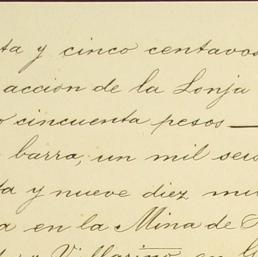 ta y cinco centavos
acción de la Lonja
o cincuenta pesos
barra, un mil seis
ta y nueve diez mi
a en la Mina de
y Villarino, en